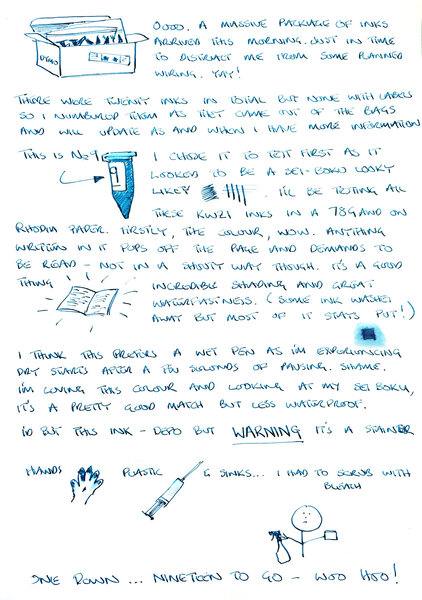 Oooo. A MASSIVE PACKAGE OF INKS
ARRIVED THIS MORNING. JUST IN TIME
TO DISTRACT ME FROM SOME PLANNED
WIRING. YAY!
THERE WERE TWENTY INKS IN TOTAL BUT NONE WITH LABELS
SO I NUMBERED THEM AS THEY CAME OUT OF THE BAGS
AND WILL UPDATE AS AND WHEN I HAVE MORE INFORMATION
THIS IS No 9
I CHOSE IT TO TEST FIRST AS IT
LOOKED TO BE A SEI-BOKU LOOKY
LIKEY. I'LL BE TESTING ALL
THESE KWZI INKS IN A 78G AND ON
RHODIA PAPER. FIRSTLY, THE COLOUR, WOW. ANYTHING
WRITTEN IN IT POPS OFF THE PAGE AND DEMANDS TO
BE READ - NOT IN A SHOUTY WAY THOUGH. IT'S A GOOD
THING
INCREDIBLE SHADING AND GREAT
WATERFASTNESS. (SOME INK WASHES
AWAY BUT MOST OF IT STAYS PUT!)
I THINK THIS PREFERS A WET PEN AS I'M EXPERIENCING
DRY STARTS AFTER A FEW SECONDS OF PAUSING. SHAME.
I'M LOVING THIS COLOUR AND LOOKING AT MY SEI BOKU,
IT'S A PRETTY GOOD MATCH BUT LESS WATERPROOF.
I'D BUY THIS INK - DEFO BUT WARNING IT'S A STAINER
HANDS PLASTIC & SINKS... I HAD TO SCRUB WITH
BLEACH
ONE DOWN ... NINETEEN TO GO - WOO HOO!